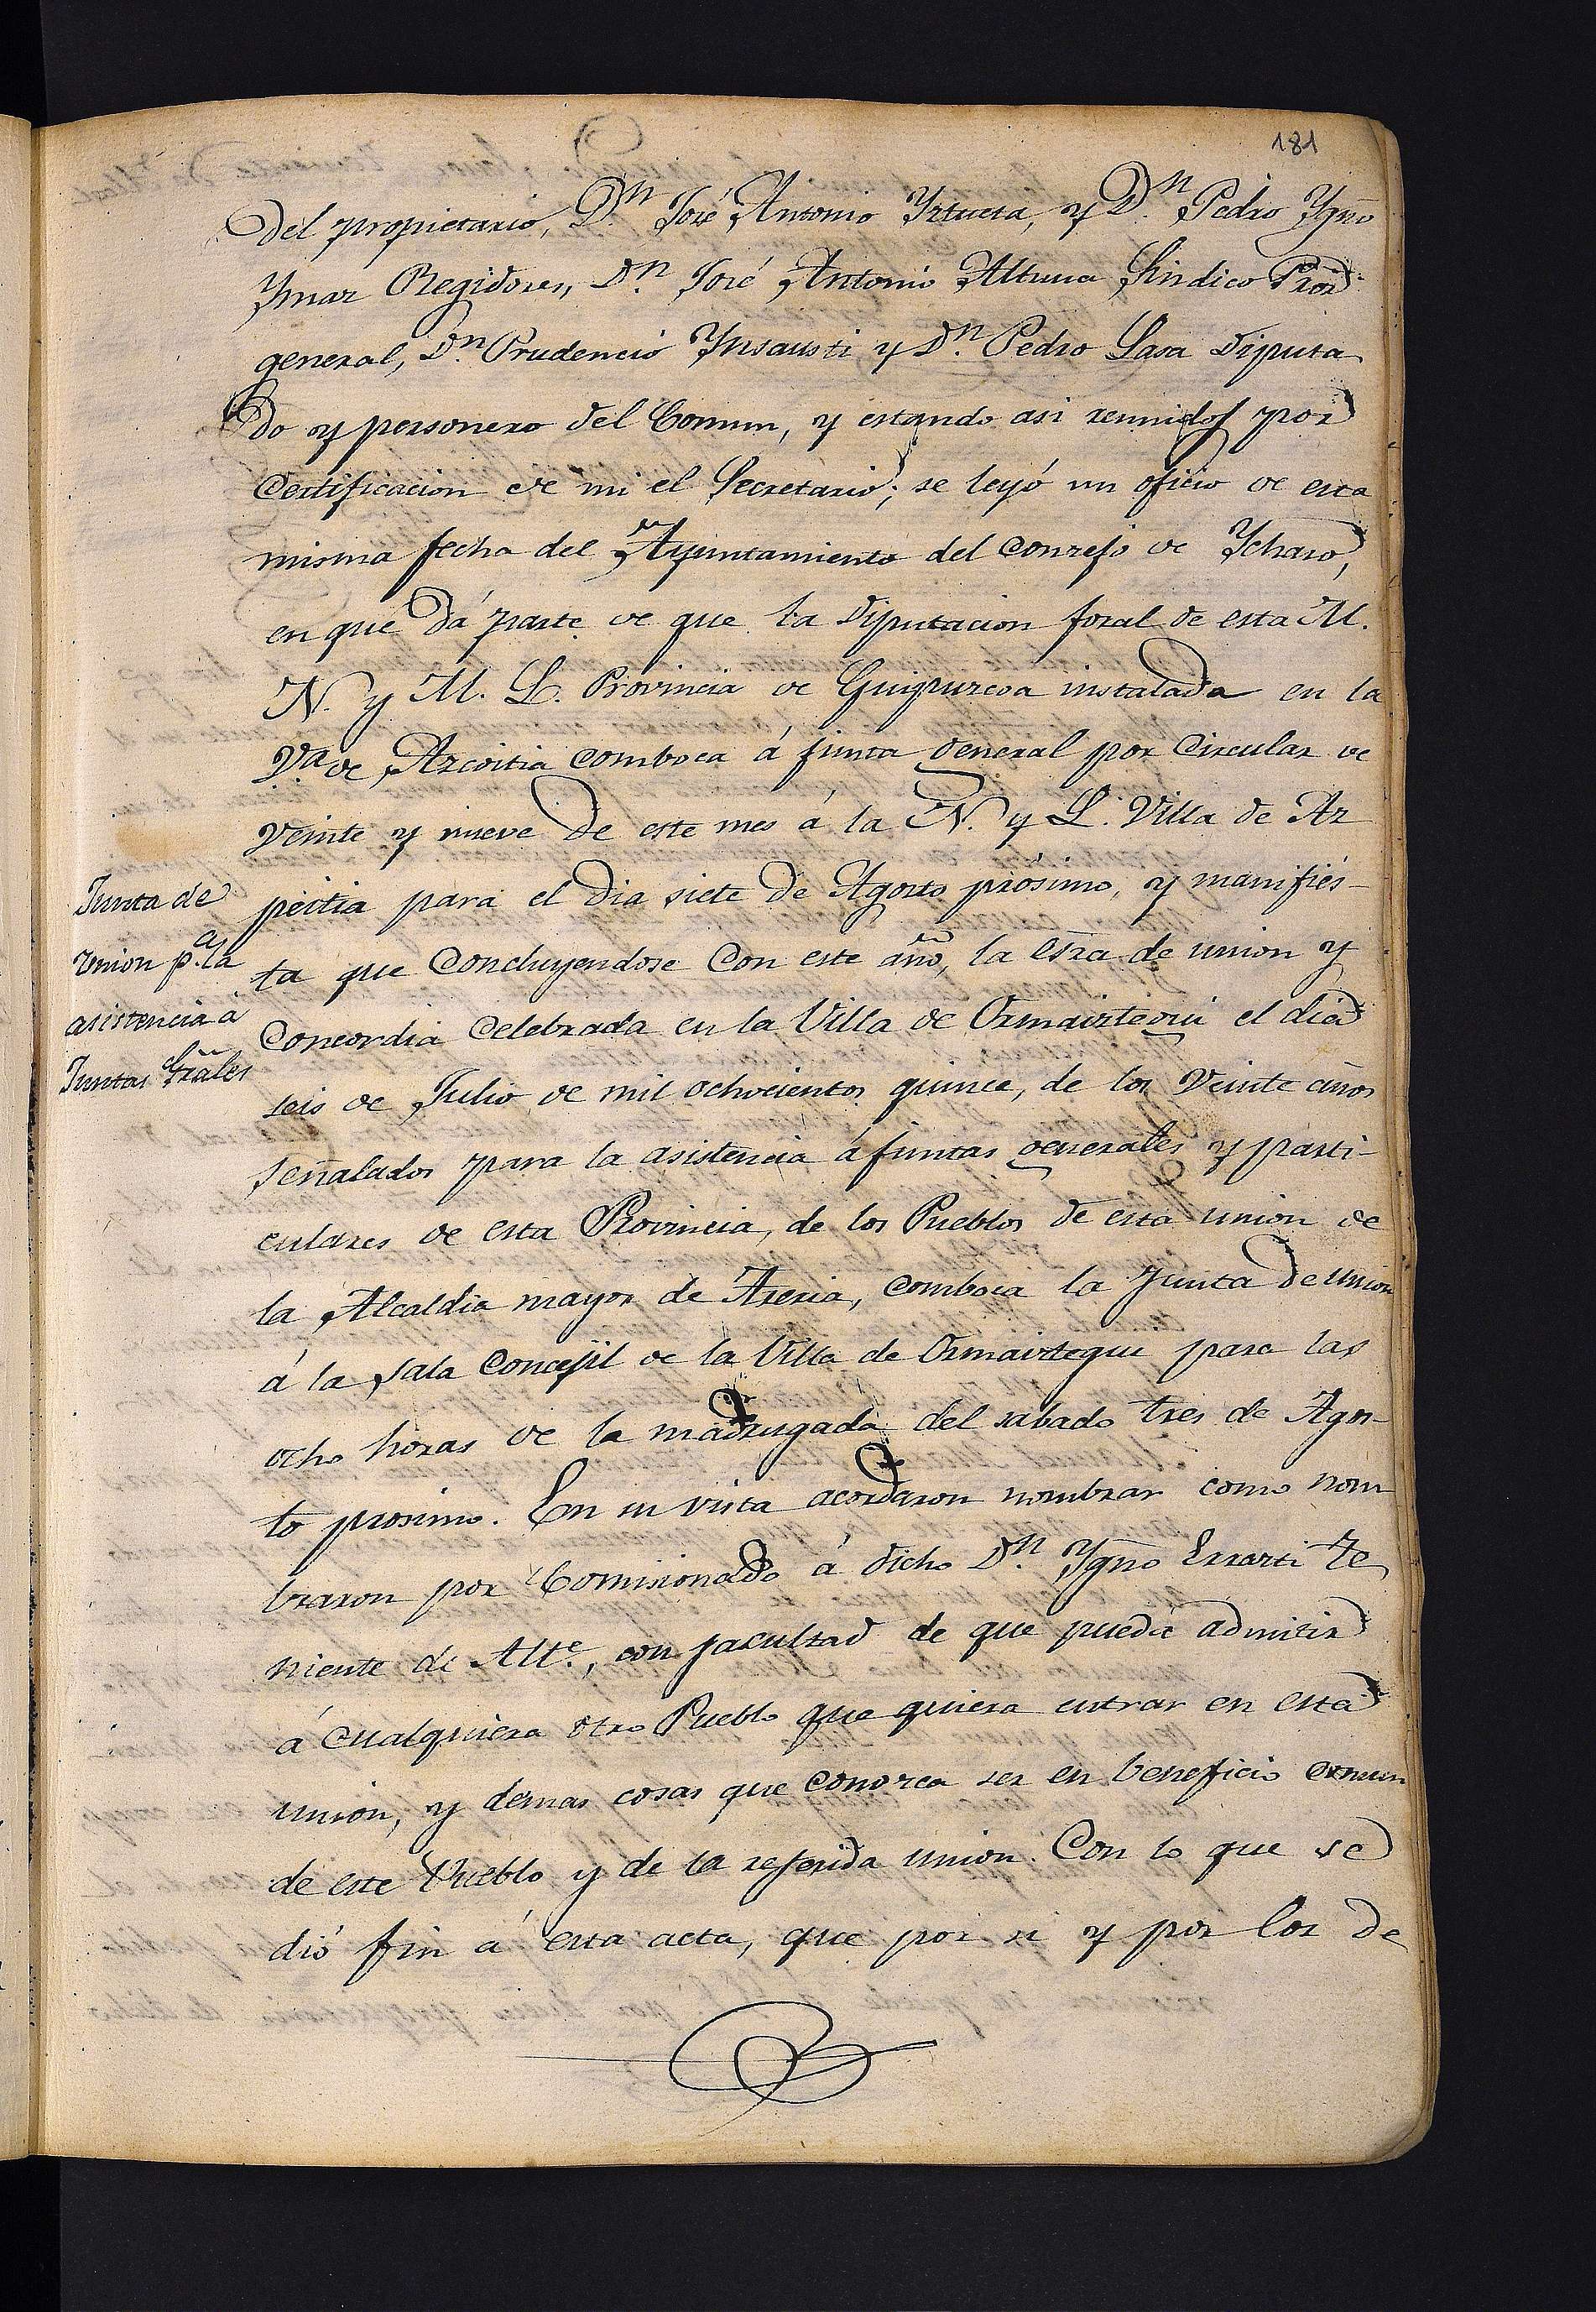 181
del propietario, Dn. José Antonio Yztueta, y Dn. Pedro Ygño
Ymaz Regidores, Dn. José Antonio Altuna Sindico Pror
general, Dn. Prudencio Ynsausti y Dn. Pedro Lasa Diputa
do y personero del Comun, y estando asi reunidos por
Certificacion de mi el Secretario; se leyó un oficio de esta
misma fecha del Ayuntamiento del Conzejo de Ychaso,
en que dá parte de que la Diputacion foral de esta M.
N. y M. L. Provincia de Guipuzcoa instalada en la
Va. de Azcoitia comboca á junta general por Circular de
Veinte y nueve de este mes á la N. y L. Villa de Az
peitia para el dia siete de Agosto prósimo, y manifies-
Junta de
Union pa. la
asistencia á
Juntas Gräles
ta que Concluyendose Con este año, la esra de union y
Concordia Celebrada en la Villa de Ormaiztegui el dia
seis de Julio de mil ochocientos quince, de los Veinte años
señalados para la asistencia á juntas generales y parti-
culares de esta Provincia, de los Pueblos de esta union de
la Alcaldia mayor de Areria, comboca la Junta de Union
á la Sala Concejil de la Villa de Ormaiztegui para las
ocho horas de la madrugada del sabado tres de Agos-
to prosimo. En su vista acordaron nombrar como nom
braron por Comisionado á dicho Dn. Ygño Errazti Te
niente de Alte., con facultad de que pueda admitir
á Cualquiera otro Pueblo que quiera entrar en esta
union, y demas cosas que Conozca ser en beneficio comun
de este Pueblo y de la referida union. Con lo que se
dió fin á esta acta, que por si y por los de